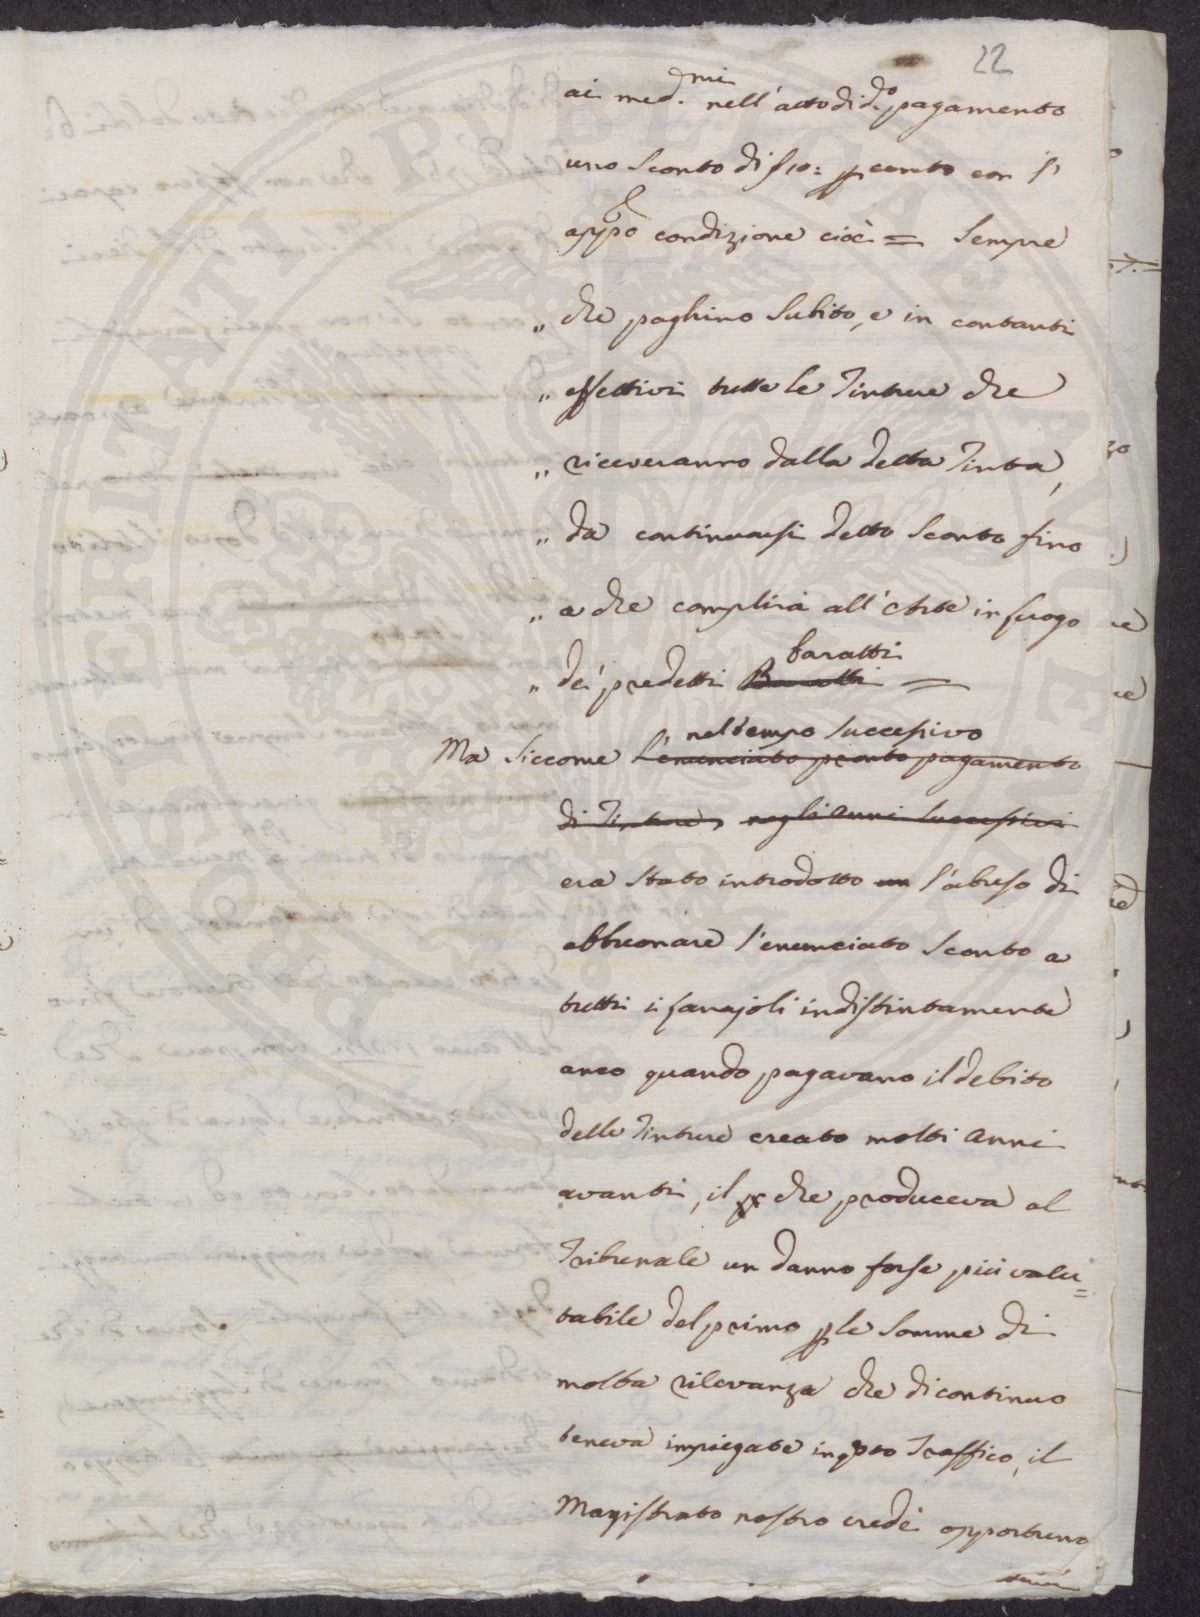 22
ai med.mi nell'atto di do pagamento
uno Sconto di f 10: p cento con l'
appo condizione cioè = Sempre
„ che paghino Subito, e in contanti
„ effettivi tutte le Tinture che
„ riceveranno dalla detta Tinta,
„ da continuarsi detto Sconto fino
„ a che complirà all'Arte in luogo
baratti
„ de' predetti Baratti =
nel tempo successivo
Ma siccome l'enunciato pronto pagamento
di Tinture, negli anni successivi
era stato introdotto un l'abuso di
abbuonare l'enunciato Sconto a
tutti i Lanajoli indistintamente
anco quando pagavano il debito
delle Tinture creato molti anni
avanti, il che produceva al
Tribunale un danno forse più valu=
tabile del primo p le Somme di
molta rilevanza che di continuo
teneva impiegate in qsto Traffico, il
Magistrato nostro credé opportuno